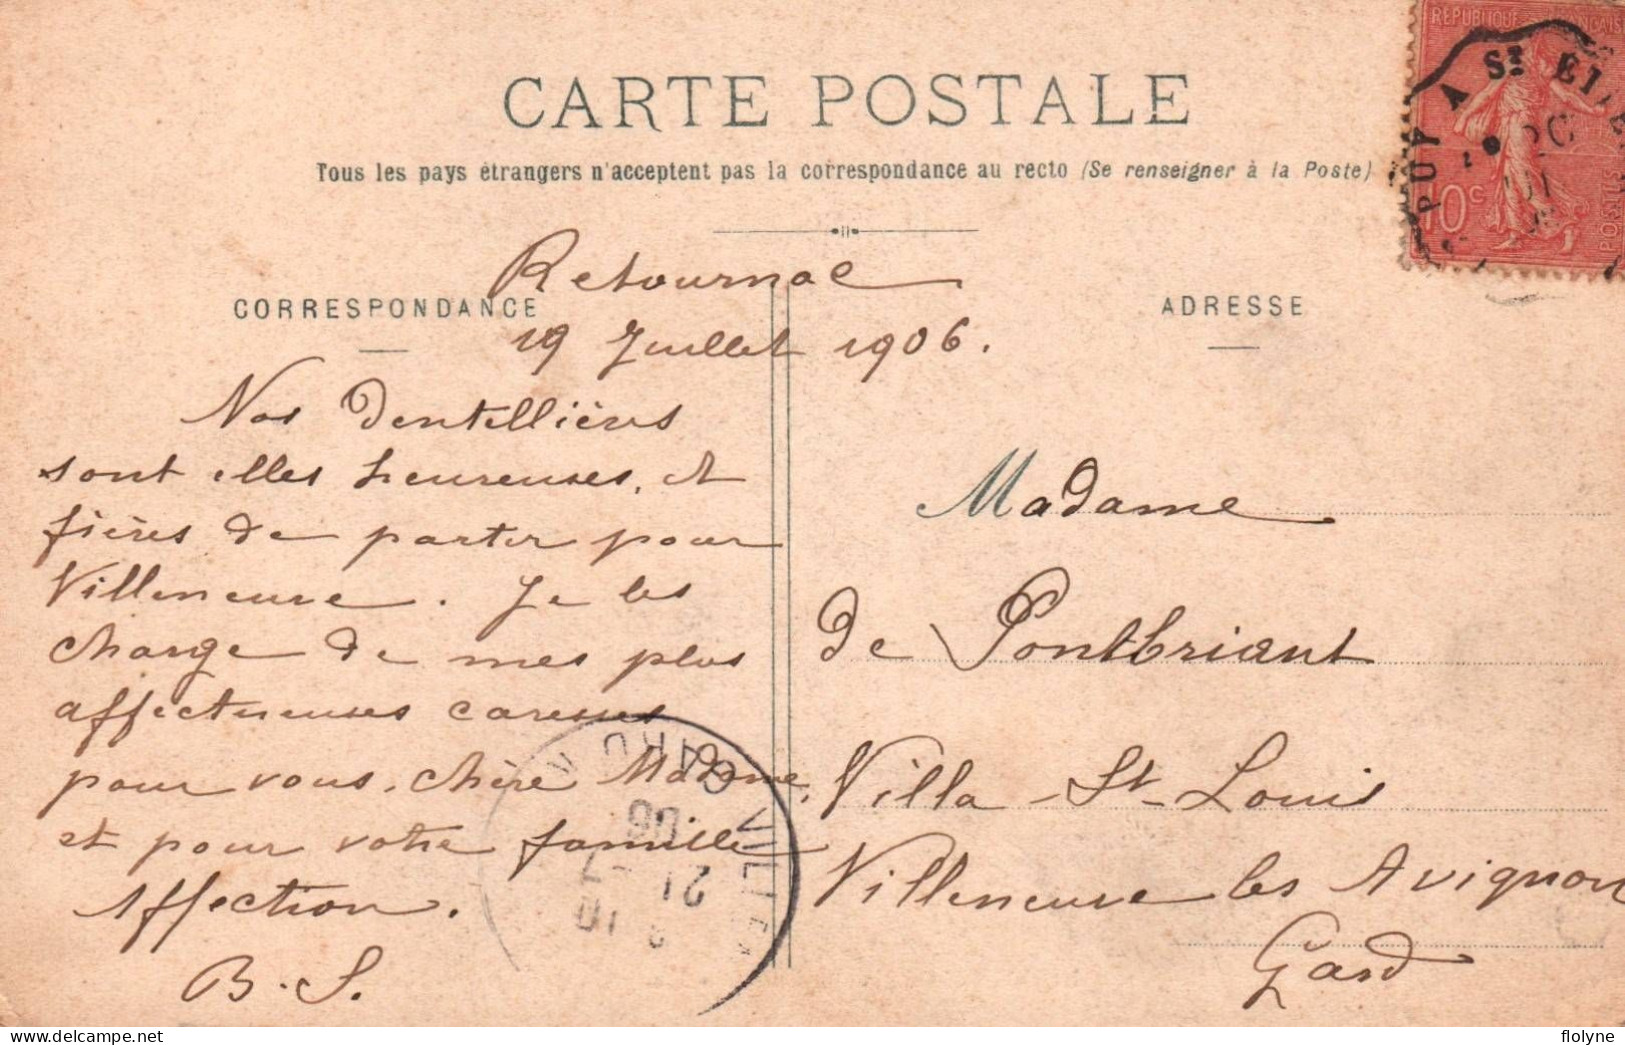 CARTE POSTALE
Tous les pays étrangers n'acceptent pas la correspondance au recto (Se renseigner à la Poste)
REPUBLIQUE FRANÇAISE
10c
POSTES
PUY A St ETIE
CORRESPONDANCE
ADRESSE
Retournac
19 Juillet 1906.
Nos Dentellières
sont elles heureuses, et
fières de partir pour
Villeneuve. Je les
charge de mes plus
affectueuses caresses
pour vous, chère Madame,
et pour votre famille
Affection.
B. S.
Madame
de Pontbriant
Villa St Louis
Villeneuve les Avignon
Gard
VILLE
GARD
21 7
06
flolyne